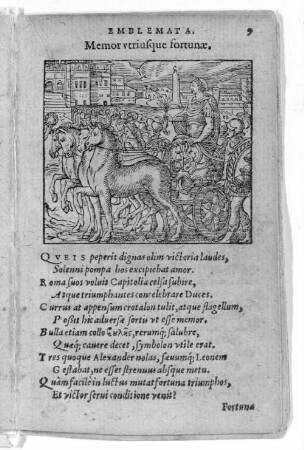 EMBLEMATA. 9
Memor vtriusque fortunæ.
QVEIS peperit dignas olim victoria laudes,
Solenni pompa hos excipiebat amor.
Roma suos voluit Capitolia celsa subire,
Atque triumphantes concelebrare Duces.
Currus at appensum crotalon tulit, atque flagellum,
Posset hic aduersæ sortis vt esse memor.
Bulla etiam collo , rerumq́; salubre,
Quæq́; cauere decet, symbolon vtile erat.
Tres quoque Alexander nolas, sæuumq́; Leonem
Gestabat, ne esset strenuus absque metu.
Quàm facilè in luctus mutat fortuna triumphos,
Et victor serui conditione venit?
Fortuna